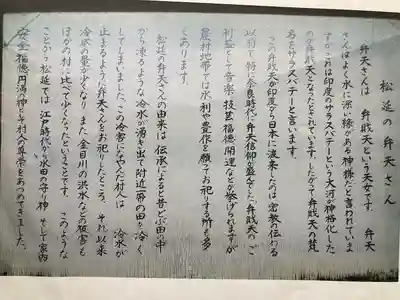 松延の弁天さん
弁天さんは、弁戝天という天女です。弁天
さんはよく水に深い縁のある神様だと言われていま
すがこれは印度のサラスバテーという大河が神格化した
のが弁戝天となったとされています。したがって弁戝天の梵
名をサラスバテーと言います。
この弁戝天が印度から日本に渡来したのは密教の伝わる
以前で、特に奈良時代に弁天信仰が盛んでした。弁戝天のご
利益として音楽、技芸、福徳、開運などが挙げられますが
農村地帯では水利や豊作を願ってお祀りする所も多
くあります。
松延の弁天さんの由来は、伝承によると昔どぶ田の中
から凍るような冷水が湧き出て附近一帯の田を冷く
してしまいました。この冷害になやんだ村人は、冷水が
止まるように弁天さんをお祀りしたところ、それ以来
冷水の量が少くなり、また、金目川の洪水などの被害も
ほかの村に比べて少くなったということです。このような
ことから松延では、江戸時代から水田の守り神、そして家内
安全、福徳円満の神として村人の尊崇をあつめてきました。